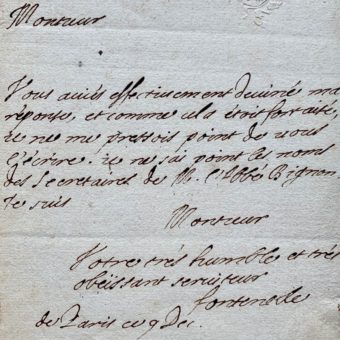 Monsieur
Vous aviés effectivement deviné ma
réponse, et comme cela étoit fort aisé,
je ne me pressois point de vous
l'écrire. je ne sai point les noms
des Secretaires de M. l'Abbé Bignon.
Je suis
Monsieur
Votre trés humble et trés
obëissant serviteur
fontenelle
de Paris ce 9 Dec.